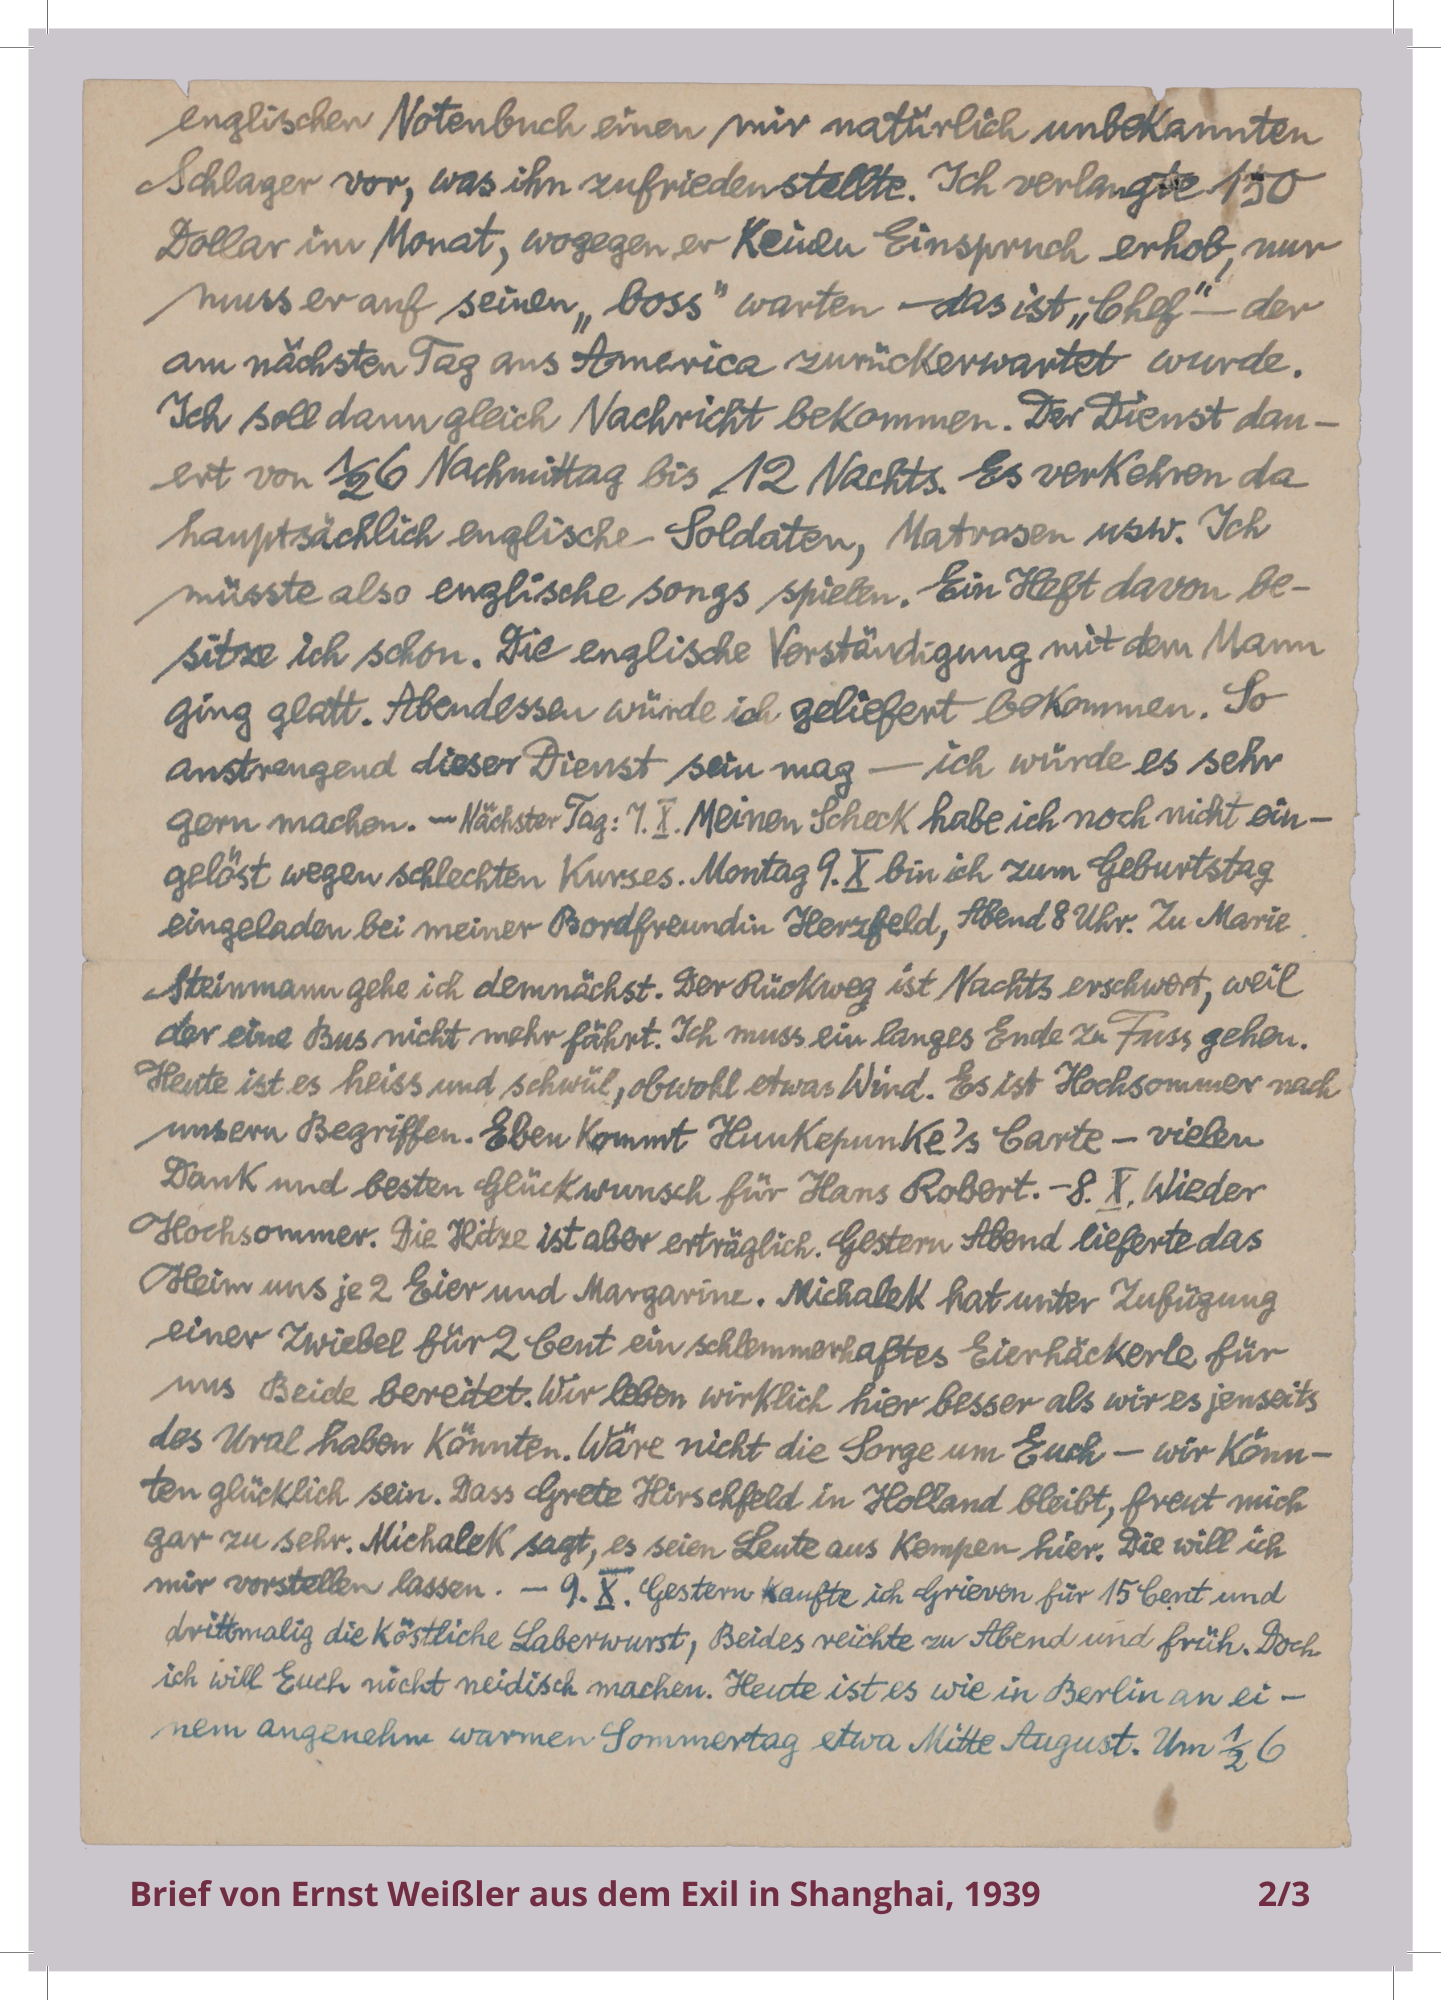 englischen Notenbuch einen mir natürlich unbekannten
Schlager vor, was ihn zufriedenstellte. Ich verlangte 150
Dollar im Monat, wogegen er keinen Einspruch erhob, nur
muss er auf seinen „boss" warten — das ist „Chef" — der
am nächsten Tag aus America zurückerwartet wurde.
Ich soll dann gleich Nachricht bekommen. Der Dienst dau-
ert von ½6 Nachmittag bis 12 Nachts. Es verkehren da
hauptsächlich englische Soldaten, Matrosen usw. Ich
müsste also englische songs spielen. Ein Heft davon be-
sitze ich schon. Die englische Verständigung mit dem Mann
ging glatt. Abendessen würde ich geliefert bekommen. So
anstrengend dieser Dienst sein mag — ich würde es sehr
gern machen. — Nächster Tag: 7. X. Meinen Scheck habe ich noch nicht ein-
gelöst wegen schlechten Kurses. Montag 9. X bin ich zum Geburtstag
eingeladen bei meiner Bordfreundin Herzfeld, Abend 8 Uhr. Zu Marie
Steinmann gehe ich demnächst. Der Rückweg ist Nachts erschwert, weil
der eine Bus nicht mehr fährt. Ich muss ein langes Ende zu Fuss gehen.
Heute ist es heiss und schwül, obwohl etwas Wind. Es ist Hochsommer nach
unsern Begriffen. Eben kommt Hunkepunke's Carte — vielen
Dank und besten Glückwunsch für Hans Robert. — 8. X. Wieder
Hochsommer. Die Hitze ist aber erträglich. Gestern Abend lieferte das
Heim uns je 2 Eier und Margarine. Michalek hat unter Zufügung
einer Zwiebel für 2 Cent ein schlemmerhaftes Eierhäckerle für
uns Beide bereitet. Wir leben wirklich hier besser als wir es jenseits
des Ural haben könnten. Wäre nicht die Sorge um Euch — wir könn-
ten glücklich sein. Dass Grete Hirschfeld in Holland bleibt, freut mich
gar zu sehr. Michalek sagt, es seien Leute aus Kempen hier. Die will ich
mir vorstellen lassen. — 9. X. Gestern kaufte ich Grieven für 15 Cent und
drittmalig die köstliche Laberwurst, Beides reichte zu Abend und früh. Doch
ich will Euch nicht neidisch machen. Heute ist es wie in Berlin an ei-
nem angenehm warmen Sommertag etwa Mitte August. Um ½ 6
Brief von Ernst Weißler aus dem Exil in Shanghai, 1939
2/3